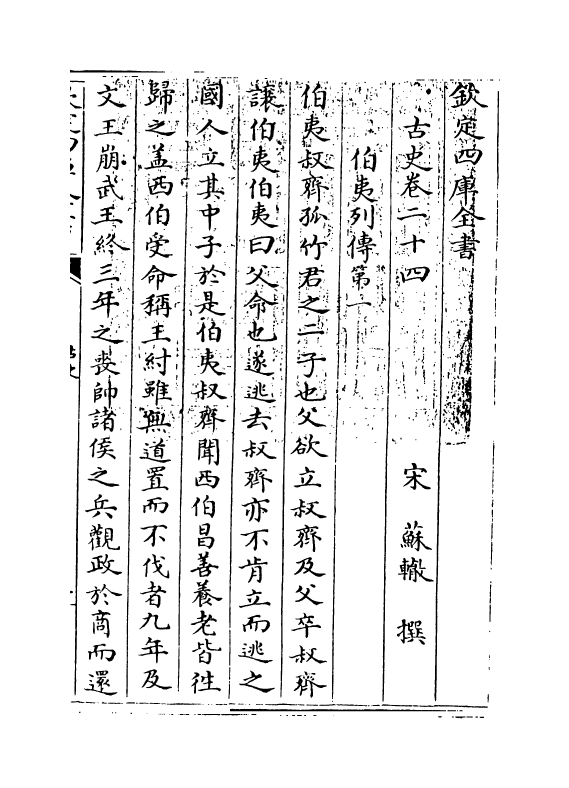 欽定四庫全書
古史卷二十四
宋 蘇轍 撰
伯夷列傳第一
伯夷叔齊孤竹君之二子也父欲立叔齊及父卒叔齊
讓伯夷伯夷曰父命也遂逃去叔齊亦不肯立而逃之
國人立其中子於是伯夷叔齊聞西伯昌善養老皆往
歸之盖西伯受命稱王紂雖無道置而不伐者九年及
文王崩武王終三年之喪帥諸侯之兵觀政於商而還